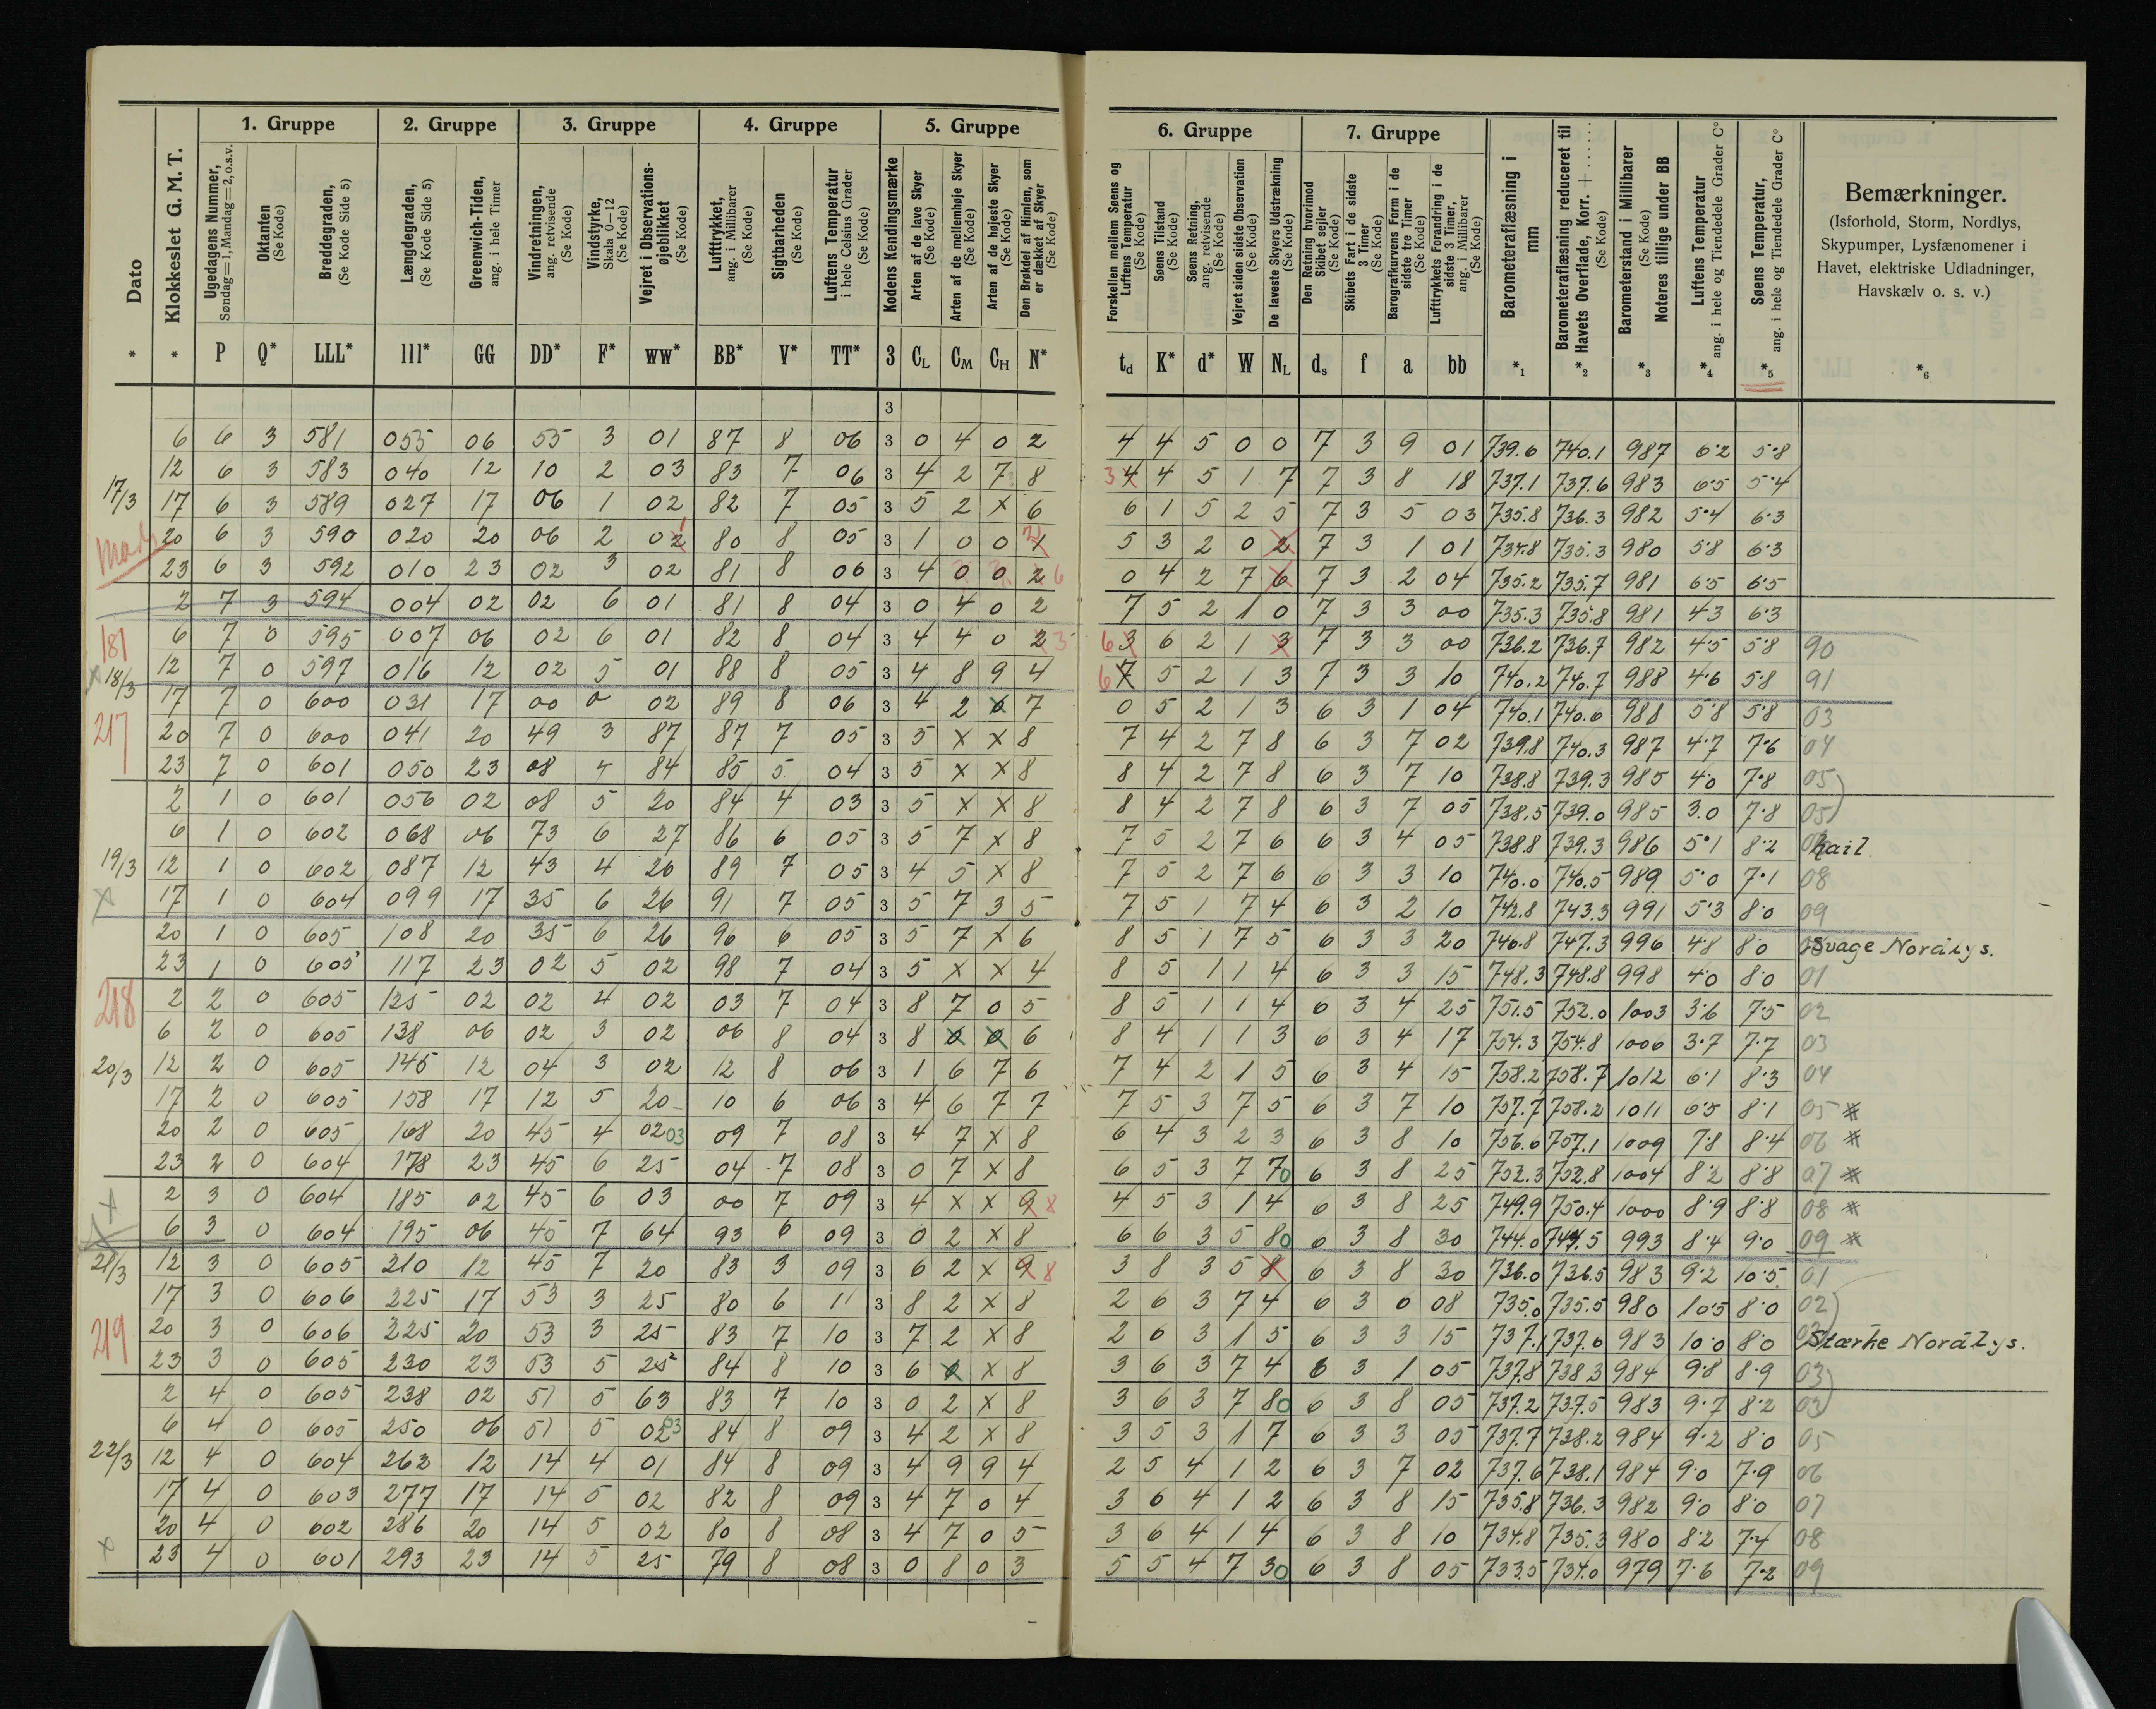 1. Gruppe 2. Gruppe 3. Gruppe 4. Gruppe 5. Gruppe 6. Gruppe 7. Gruppe
Dato
Klokkeslet G. M. T.
Ugedagens Nummer, Søndag=1, Mandag=2, o.s.v.
Oktanten (Se Kode)
Breddegraden, (Se Kode Side 5)
Længdegraden, (Se Kode Side 5)
Greenwich-Tiden, ang. i hele Timer
Vindretningen, ang. retvisende (Se Kode)
Vindstyrke, Skala 0—12 (Se Kode)
Vejret i Observations-øjeblikket (Se Kode)
Lufttrykket, ang. i Millibarer (Se Kode)
Sigtbarheden (Se Kode)
Luftens Temperatur i hele Celsius Grader (Se Kode)
Kodens Kendingsmærke
Arten af de lave Skyer (Se Kode)
Arten af de mellemhøje Skyer (Se Kode)
Arten af de højeste Skyer (Se Kode)
Den Brøkdel af Himlen, som er dækket af Skyer (Se Kode)
Forskellen mellem Søens og Luftens Temperatur (Se Kode)
Søens Tilstand (Se Kode)
Søens Retning, ang. retvisende (Se Kode)
Vejret siden sidste Observation (Se Kode)
De laveste Skyers Udstrækning (Se Kode)
Den Retning hvorimod Skibet sejler (Se Kode)
Skibets Fart i de sidste 3 Timer (Se Kode)
Barografkurvens Form i de sidste tre Timer (Se Kode)
Lufttrykkets Forandring i de sidste 3 Timer, ang. i Millibarer (Se Kode)
Barometeraflæsning i mm
Barometeraflæsning reduceret til Havets Overflade, Korr. + ....... (Se Kode)
Barometerstand i Millibarer (Se Kode) Noteres tillige under BB
Luftens Temperatur ang. i hele og Tiendedele Grader C°
Søens Temperatur, ang. i hele og Tiendedele Grader C°
Bemærkninger.
(Isforhold, Storm, Nordlys,
Skypumper, Lysfænomener i
Havet, elektriske Udladninger,
Havskælv o. s. v.)
* * P Q* LLL* lll* GG DD* F* ww* BB* V* TT* 3 CL CM CH N* td K* d* W NL ds f a bb *1 *2 *3 *4 *5 *6
3
6 6 3 581 055 06 55 3 01 87 8 06 3 0 4 0 2 4 4 5 0 0 7 3 9 01 739.6 740.1 987 6.2 5.8
12 6 3 583 040 12 10 2 03 83 7 06 3 4 2 7 8 3 4 4 5 1 7 7 3 8 18 737.1 737.6 983 6.5 5.4
17/3 17 6 3 589 027 17 06 1 02 82 7 05 3 5 2 x 6 6 1 5 2 5 7 3 5 03 735.8 736.3 982 5.4 6.3
20 6 3 590 020 20 06 2 02 1 80 8 05 3 1 0 0 5 3 2 0 2 7 3 1 01 734.8 735.3 980 5.8 6.3
23 6 3 592 010 23 02 3 02 81 8 06 3 4 0 0 2 6 0 4 2 7 6 7 3 2 04 735.2 735.7 981 6.5 6.5
2 7 3 594 004 02 02 6 01 81 8 04 3 0 4 0 2 7 5 2 1 0 7 3 3 00 735.3 735.8 981 4.3 6.3
181 6 7 0 595 007 06 02 6 01 82 8 04 3 4 4 0 2 3 6 3 6 2 1 3 7 3 3 00 736.2 736.7 982 4.5 5.8 90
x 18/3 12 7 0 597 016 12 02 5 01 88 8 05 3 4 8 9 4 6 7 5 2 1 3 7 3 3 10 740.2 740.7 988 4.6 5.8 91
17 7 0 600 031 17 00 0 02 89 8 06 3 4 2 x 7 0 5 2 1 3 6 3 1 04 740.1 740.6 988 5.8 5.8 03
217 20 7 0 600 041 20 49 3 87 87 7 05 3 5 x x 8 7 4 2 7 8 6 3 7 02 739.8 740.3 987 4.7 7.6 04
23 7 0 601 050 23 08 5 84 85 5 04 3 5 x x 8 8 4 2 7 8 6 3 7 10 738.8 739.3 985 4.0 7.8 05
2 1 0 601 056 02 08 5 20 84 4 03 3 5 x x 8 8 4 2 7 8 6 3 7 05 738.5 739.0 985 3.0 7.8 05
6 1 0 602 068 06 73 6 27 86 6 05 3 5 7 x 8 7 5 2 7 6 6 3 4 05 738.8 739.3 986 5.1 8.2 hail
19/3 12 1 0 602 087 12 43 4 20 89 7 05 3 4 5 x 8 7 5 2 7 6 6 3 3 10 740.0 740.5 989 5.0 7.1 08
x 17 1 0 604 099 17 35 6 26 91 7 05 3 5 7 3 5 7 5 1 7 4 6 3 2 10 742.8 743.3 991 5.3 8.0 09
20 1 0 605 108 20 35 6 26 96 6 05 3 5 7 x 6 8 5 1 7 5 6 3 3 20 746.8 747.3 996 4.8 8.0 Svage Nordlys.
23 1 0 605 117 23 02 5 02 98 7 04 3 5 x x 4 8 5 1 1 4 6 3 3 15 748.3 748.8 998 4.0 8.0 01
218 2 2 0 605 125 02 02 4 02 03 7 04 3 8 7 0 5 8 5 1 1 4 6 3 4 25 751.5 752.0 1003 3.6 7.5 02
6 2 0 605 138 06 02 3 02 06 8 04 3 8 x x 6 8 4 1 1 3 6 3 4 17 754.3 754.8 1006 3.7 7.7 03
20/3 12 2 0 605 145 12 04 3 02 12 8 06 3 1 6 7 6 7 4 2 1 5 6 3 4 15 758.2 758.7 1012 6.1 8.3 04
17 2 0 605 158 17 12 5 20 10 6 06 3 4 6 7 7 7 5 3 7 5 6 3 7 10 757.7 758.2 1011 6.5 8.1 05 *
20 2 0 605 168 20 45 4 02 03 09 7 08 3 4 7 x 8 6 4 3 2 3 6 3 8 10 756.6 757.1 1009 7.8 8.4 06 *
23 2 0 604 178 23 45 6 25 04 7 08 3 0 7 x 8 6 5 3 7 7 0 6 3 8 25 752.3 752.8 1004 8.2 8.8 07 *
x 2 3 0 604 185 02 45 6 03 00 7 09 3 4 x x 9 8 4 5 3 1 4 6 3 8 25 749.9 750.4 1000 8.9 8.8 08 *
6 3 0 604 195 06 45 7 64 93 6 09 3 0 2 x 8 6 6 3 5 8 0 6 3 8 30 744.0 744.5 993 8.4 9.0 09 *
21/3 12 3 0 605 210 12 45 7 20 83 3 09 3 6 2 x 9 8 3 8 3 5 8 6 3 8 30 736.0 736.5 983 9.2 10.5 01
17 3 0 606 225 17 53 3 25 80 6 11 3 8 2 x 8 2 6 3 7 4 6 3 0 08 735.0 735.5 980 10.5 8.0 02
219 20 3 0 606 225 20 53 3 25 83 7 10 3 7 2 x 8 2 6 3 1 5 6 3 3 15 737.1 737.6 983 10.0 8.0 Stærke Nordlys.
23 3 0 605 230 23 53 5 25 84 8 10 3 6 x x 8 3 6 3 7 4 6 3 1 05 737.8 738.3 984 9.8 8.9 03
2 4 0 605 238 02 51 5 63 83 7 10 3 0 2 x 8 3 6 3 7 8 0 6 3 8 05 737.2 737.5 983 9.7 8.2 03
6 4 0 605 250 06 51 5 02 03 84 8 09 3 4 2 x 8 3 5 3 1 7 6 3 3 05 737.7 738.2 984 9.2 8.0 05
22/3 12 4 0 604 263 12 14 4 01 84 8 09 3 4 9 9 4 2 5 4 1 2 6 3 7 02 737.6 738.1 984 9.0 7.9 06
17 4 0 603 277 17 14 5 02 82 8 09 3 4 7 0 4 3 6 4 1 2 6 3 8 15 735.8 736.3 982 9.0 8.0 07
20 4 0 602 286 20 14 5 02 80 8 08 3 4 7 0 5 3 6 4 1 4 6 3 8 10 734.8 735.3 980 8.2 7.4 08
x 23 4 0 601 293 23 14 5 25 79 8 08 3 0 8 0 3 5 5 4 7 3 0 6 3 8 05 733.5 734.0 979 7.6 7.2 09